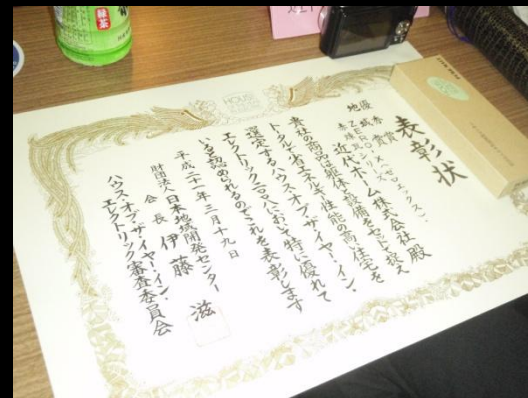 表彰状
優秀賞
地域賞
近代ホーム株式会社 殿
貴社の商品は躯体と設備をセットで捉え
トータルで省エネルギー性能の高い住宅を
選定するハウス・オブ・ザ・イヤー・イン・
エレクトリック二〇〇八において特に優れて
いると認められるのでこれを表彰します
平成二十一年三月十九日
財団法人日本地域開発センター
会長 伊藤 滋
ハウス・オブ・ザ・イヤー・イン・
エレクトリック審査委員会
緑茶